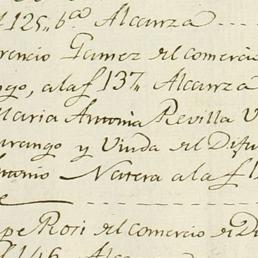 125,, b.ta Alcanza
rencio Gamez del comercio
go, a la f 137,, Alcanza
Maria Antonia Revilla V
urango y Viuda del Difu
Antonio Narera a la f 1
e
pe Rosi del comercio de D